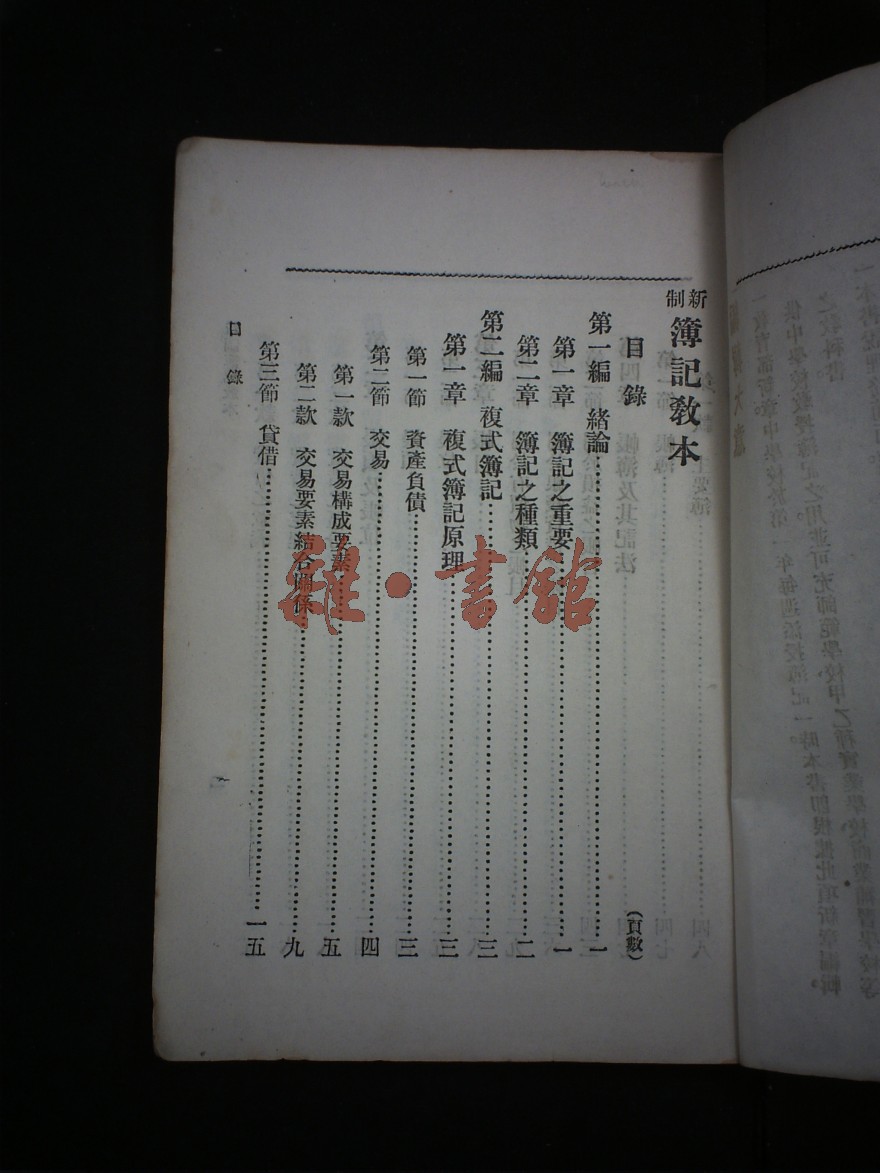 新制 簿記敎本
目錄 (頁數)
第一編 緒論 一
第一章 簿記之重要 一
第二章 簿記之種類 二
第二編 複式簿記 三
第一章 複式簿記原理 三
第一節 資產負債 三
第二節 交易 四
第一款 交易構成要素 五
第二款 交易要素結合關係 九
第三節 貸借 一五
目錄
書館